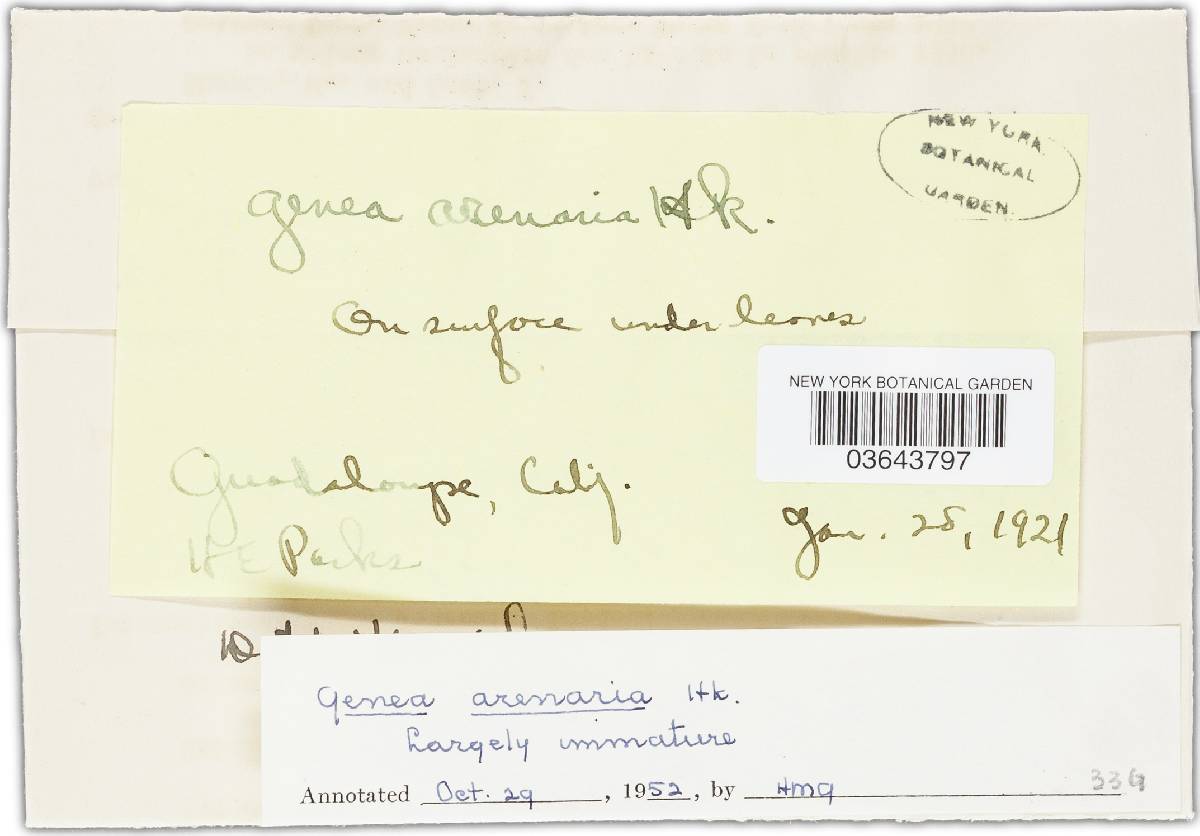 NEW YORK
BOTANICAL
GARDEN
Genea arenaria Hk.
On surface under leaves
NEW YORK BOTANICAL GARDEN
03643797
Guadaloupe, Calif.
Jan. 28, 1921
H E Parks
Genea arenaria Hk.
Largely immature
Annotated Oct. 29, 1952, by HMG
33G